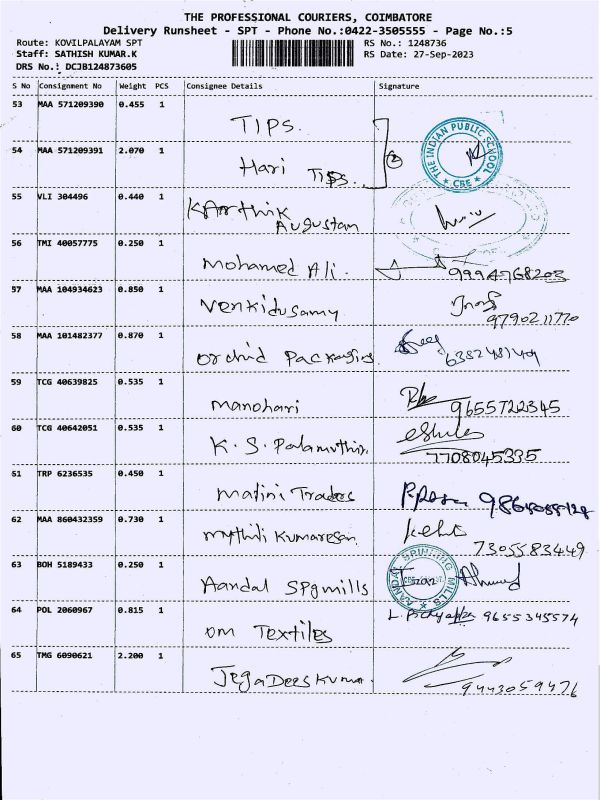 THE PROFESSIONAL COURIERS, COIMBATORE
Delivery Runsheet - SPT - Phone No.:0422-3505555 - Page No.:5
Route: KOVILPALAYAM SPT
RS No.: 1248736
Staff: SATHISH KUMAR.K
RS Date: 27-Sep-2023
DRS No.: DCJB124873605
S No Consignment No Weight PCS Consignee Details Signature
53 MAA 571209390 0.455 1 TIPS.
54 MAA 571209391 2.070 1 Hari TIPS. 2
THE INDIAN PUBLIC SCHOOL
* CBE *
55 VLI 304496 0.440 1 Karthik
Augustan
56 TMI 40057775 0.250 1 Mohamed Ali. 9994768203
57 MAA 104934623 0.850 1 Venkidusamy 9790211770
58 MAA 101482377 0.870 1 Orchid Packaging
59 TCG 40639825 0.535 1 Manohari 9655722345
60 TCG 40642051 0.535 1 K.S. Palamuthir. 7708045335
61 TRP 6236535 0.450 1 Malini Traders
62 MAA 860432359 0.730 1 Mythili Kumaresan. 7305583449
63 BOH 5189433 0.250 1 Aandal Spgmills
SPINNING MILLS
64 POL 2060967 0.815 1 Om Textiles 9655345574
65 TMG 6090621 2.200 1 JegaDeesKumar. 9443059476